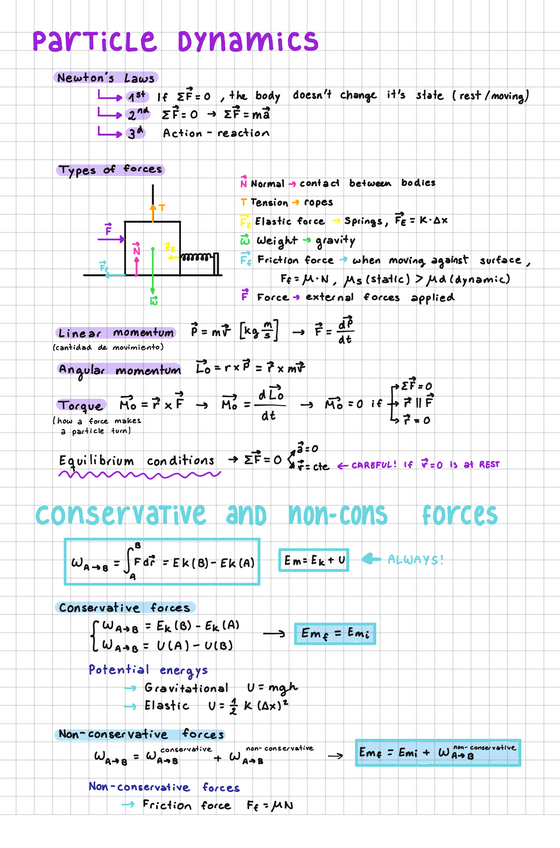 PARTICLE DYNAMICS
Newton's Laws
1st If ΣF⃗=0 , the body doesn't change it's state (rest/moving)
2nd ΣF⃗=0 → ΣF⃗=ma⃗
3d Action - reaction
Types of forces
N⃗ Normal → contact between bodies
T Tension → ropes
F⃗E Elastic force → Springs, F⃗E = K·Δx
ω⃗ Weight → gravity
F⃗f Friction force → when moving against surface,
Ff = μ·N, μs (static) > μd (dynamic)
F⃗ Force → external forces applied
T
F⃗
N⃗
F⃗E
F⃗f
ω⃗
Linear momentum P⃗ = mv⃗ [kg m/s] → F⃗ = dP⃗/dt
(cantidad de movimiento)
Angular momentum L⃗o = r × P⃗ = r⃗ × mv⃗
Torque M⃗o = r⃗ × F⃗ → M⃗o = dL⃗o/dt → M⃗o = 0 if → ΣF⃗=0
→ r⃗ || F⃗
→ r⃗ = 0
(how a force makes
a particle turn)
Equilibrium conditions → ΣF⃗=0 a⃗=0
v⃗=cte ← CAREFUL! If v⃗=0 is at REST
CONSERVATIVE AND NON-CONS FORCES
WA→B = ∫AB F dr⃗ = EK(B) - EK(A)
Em = EK + U ← ALWAYS!
Conservative forces
WA→B = EK(B) - EK(A)
WA→B = U(A) - U(B)
→ Emf = Emi
Potential energys
→ Gravitational U = mgh
→ Elastic U = 1/2 K (Δx)²
Non-conservative forces
WA→B = WA→B conservative + WA→B non-conservative → Emf = Emi + WA→B non-conservative
Non-conservative forces
→ Friction force Ff = μN